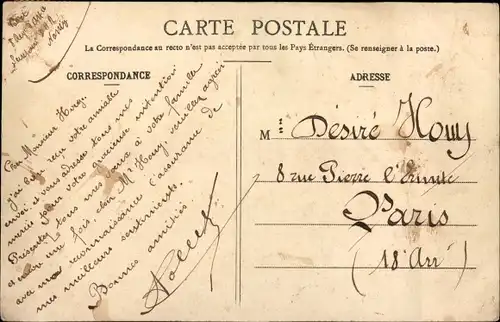 CARTE POSTALE
La Correspondance au recto n'est pas acceptée par tous les Pays Étrangers. (Se renseigner à la poste.)
CORRESPONDANCE
Cher Monsieur Houy
j'ai bien reçu votre aimable
envoi et vous adresse tous mes
mercis pour votre gracieuse intention
Présentez tous mes vœux à votre famille
et encore une fois, cher Mr Houy veuillez agréer
avec ma reconnaissance l'assurance de
mes meilleurs sentiments.
Bonnes amitiés
ADRESSE
M Désiré Houy
8 rue Pierre l'Ermite
Paris
(18 Arrt)